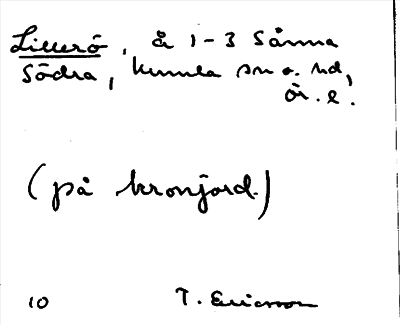 Lillerö, å 1-3 Sånna
Södra, Kumla sn o. hd,
Ör. l.
(på kronjord.)
10 T. Ericsson